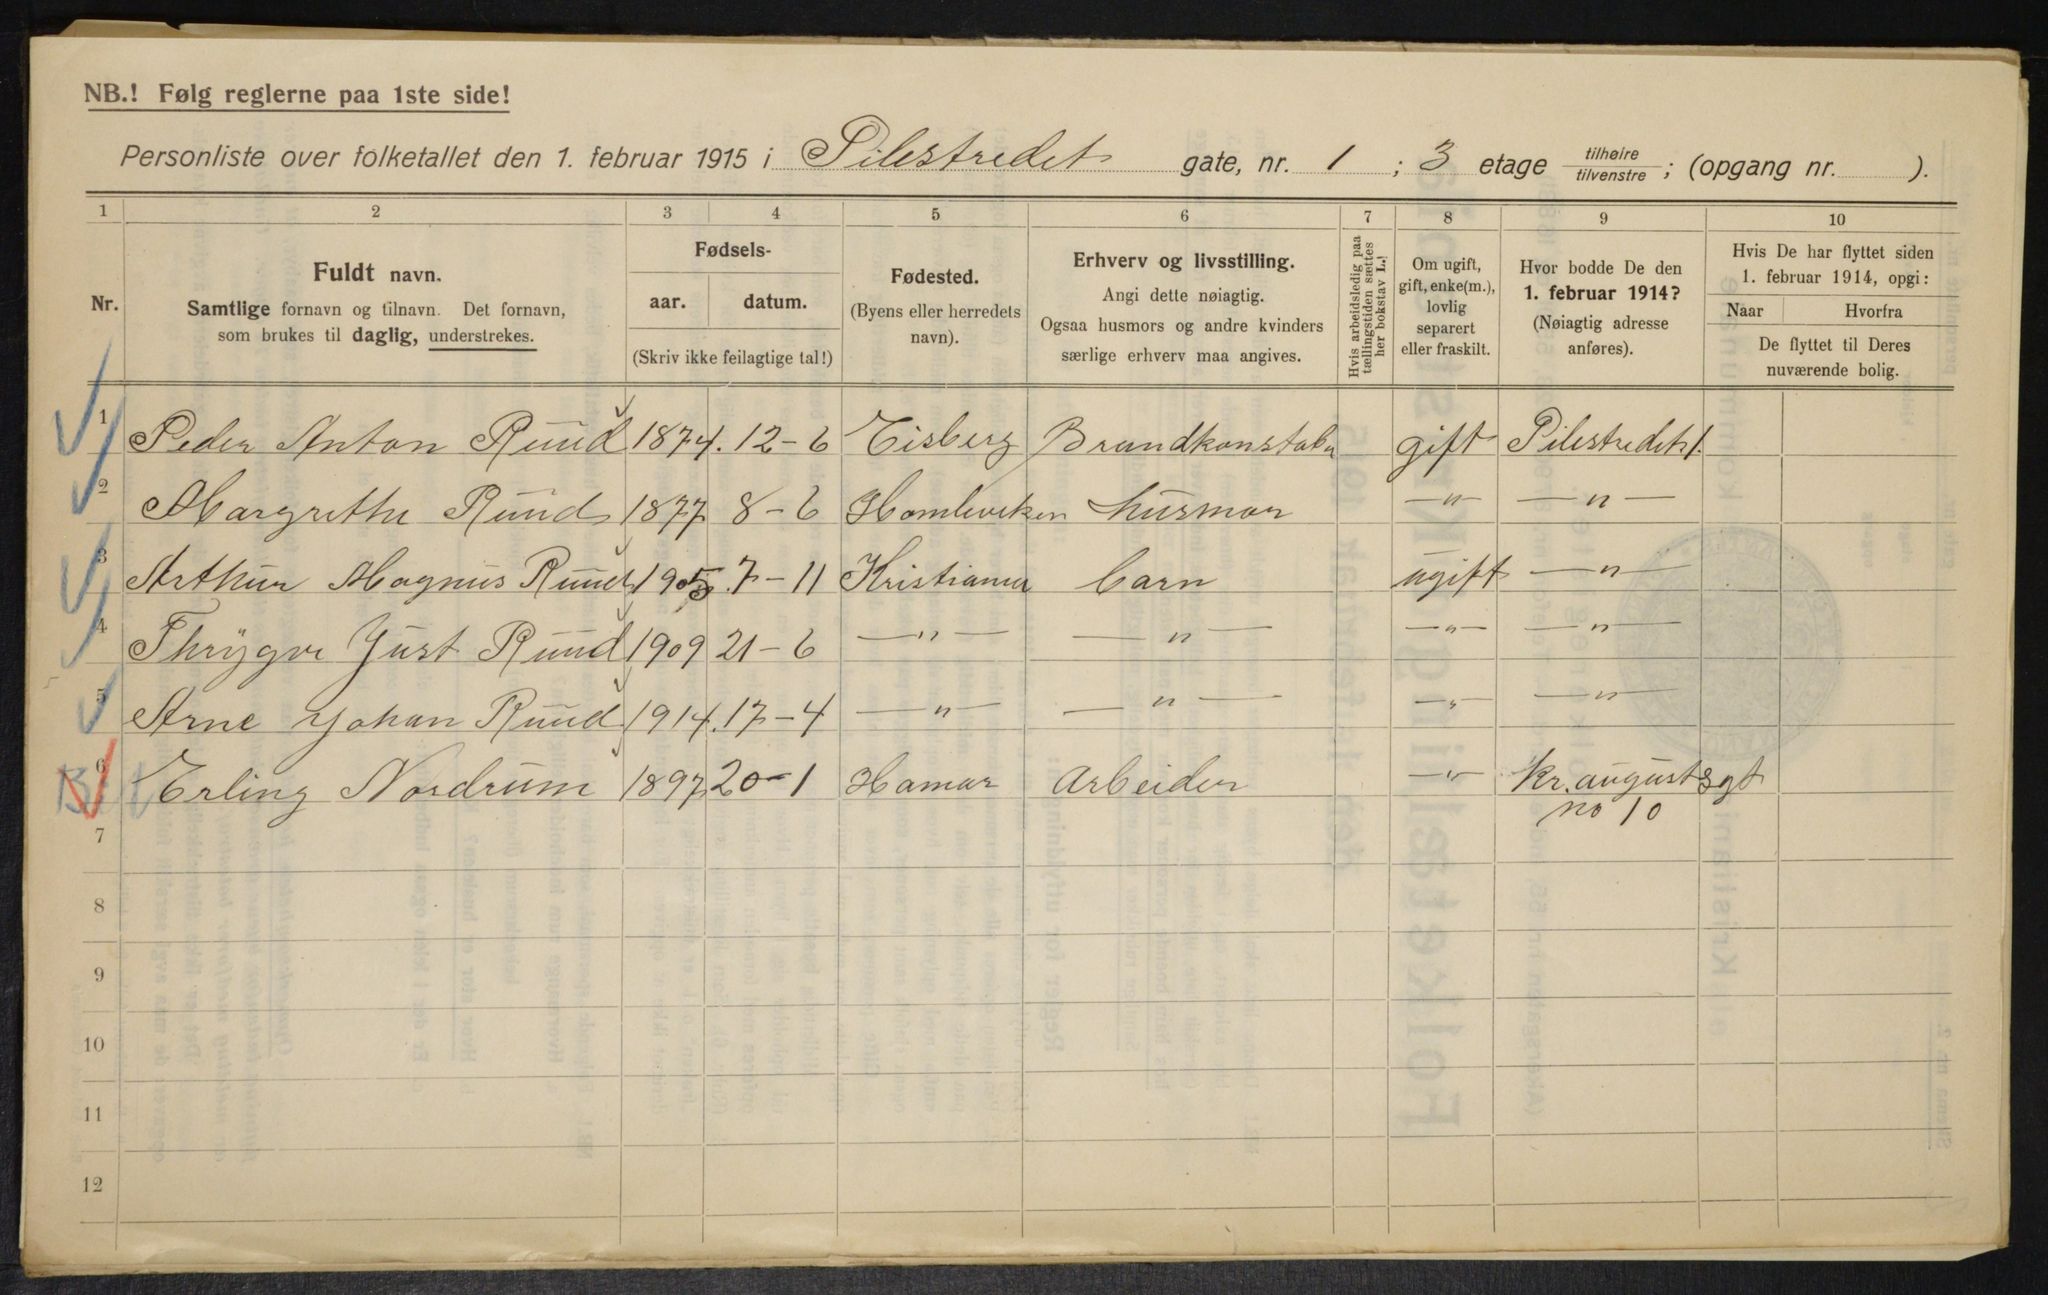 NB.! Følg reglerne paa 1ste side!
Personliste over folketallet den 1. februar 1915 i Pilestredet gate, nr. 1 ; 3 etage tilhøire / tilvenstre ; (opgang nr. ).
1 2 3 4 5 6 7 8 9 10
Nr.
Fuldt navn.
Samtlige fornavn og tilnavn. Det fornavn,
som brukes til daglig, understrekes.
Fødsels-
aar. datum.
(Skriv ikke feilagtige tal!)
Fødested.
(Byens eller herredets
navn).
Erhverv og livsstilling.
Angi dette nøiagtig.
Ogsaa husmors og andre kvinders
særlige erhverv maa angives.
Hvis arbeidsledig paa
tællingstiden sættes
her bokstav L.!
Om ugift,
gift, enke(m.),
lovlig
separert
eller fraskilt.
Hvor bodde De den
1. februar 1914?
(Nøiagtig adresse
anføres).
Hvis De har flyttet siden
1. februar 1914, opgi:
Naar Hvorfra
De flyttet til Deres
nuværende bolig.
1 Peder Anton Ruud 1874. 12-6 Eisberg Brandkonstabel gift Pilestredet 1.
2 Margrethe Ruud 1877 8-6 husmor —"— —"—
3 Arthur Magnus Ruud 1905 7-11 Kristiania barn ugift —"—
4 Thrygve Just Ruud 1909 21-6 —"— —"— —"— —"—
5 Arne Johan Ruud 1914. 17-4 —"— —"— —"— —"—
6 Erling Nordrum 1897 20-1 Hamar Arbeider —"— Kr. augustsgt
no 10
7
8
9
10
11
12